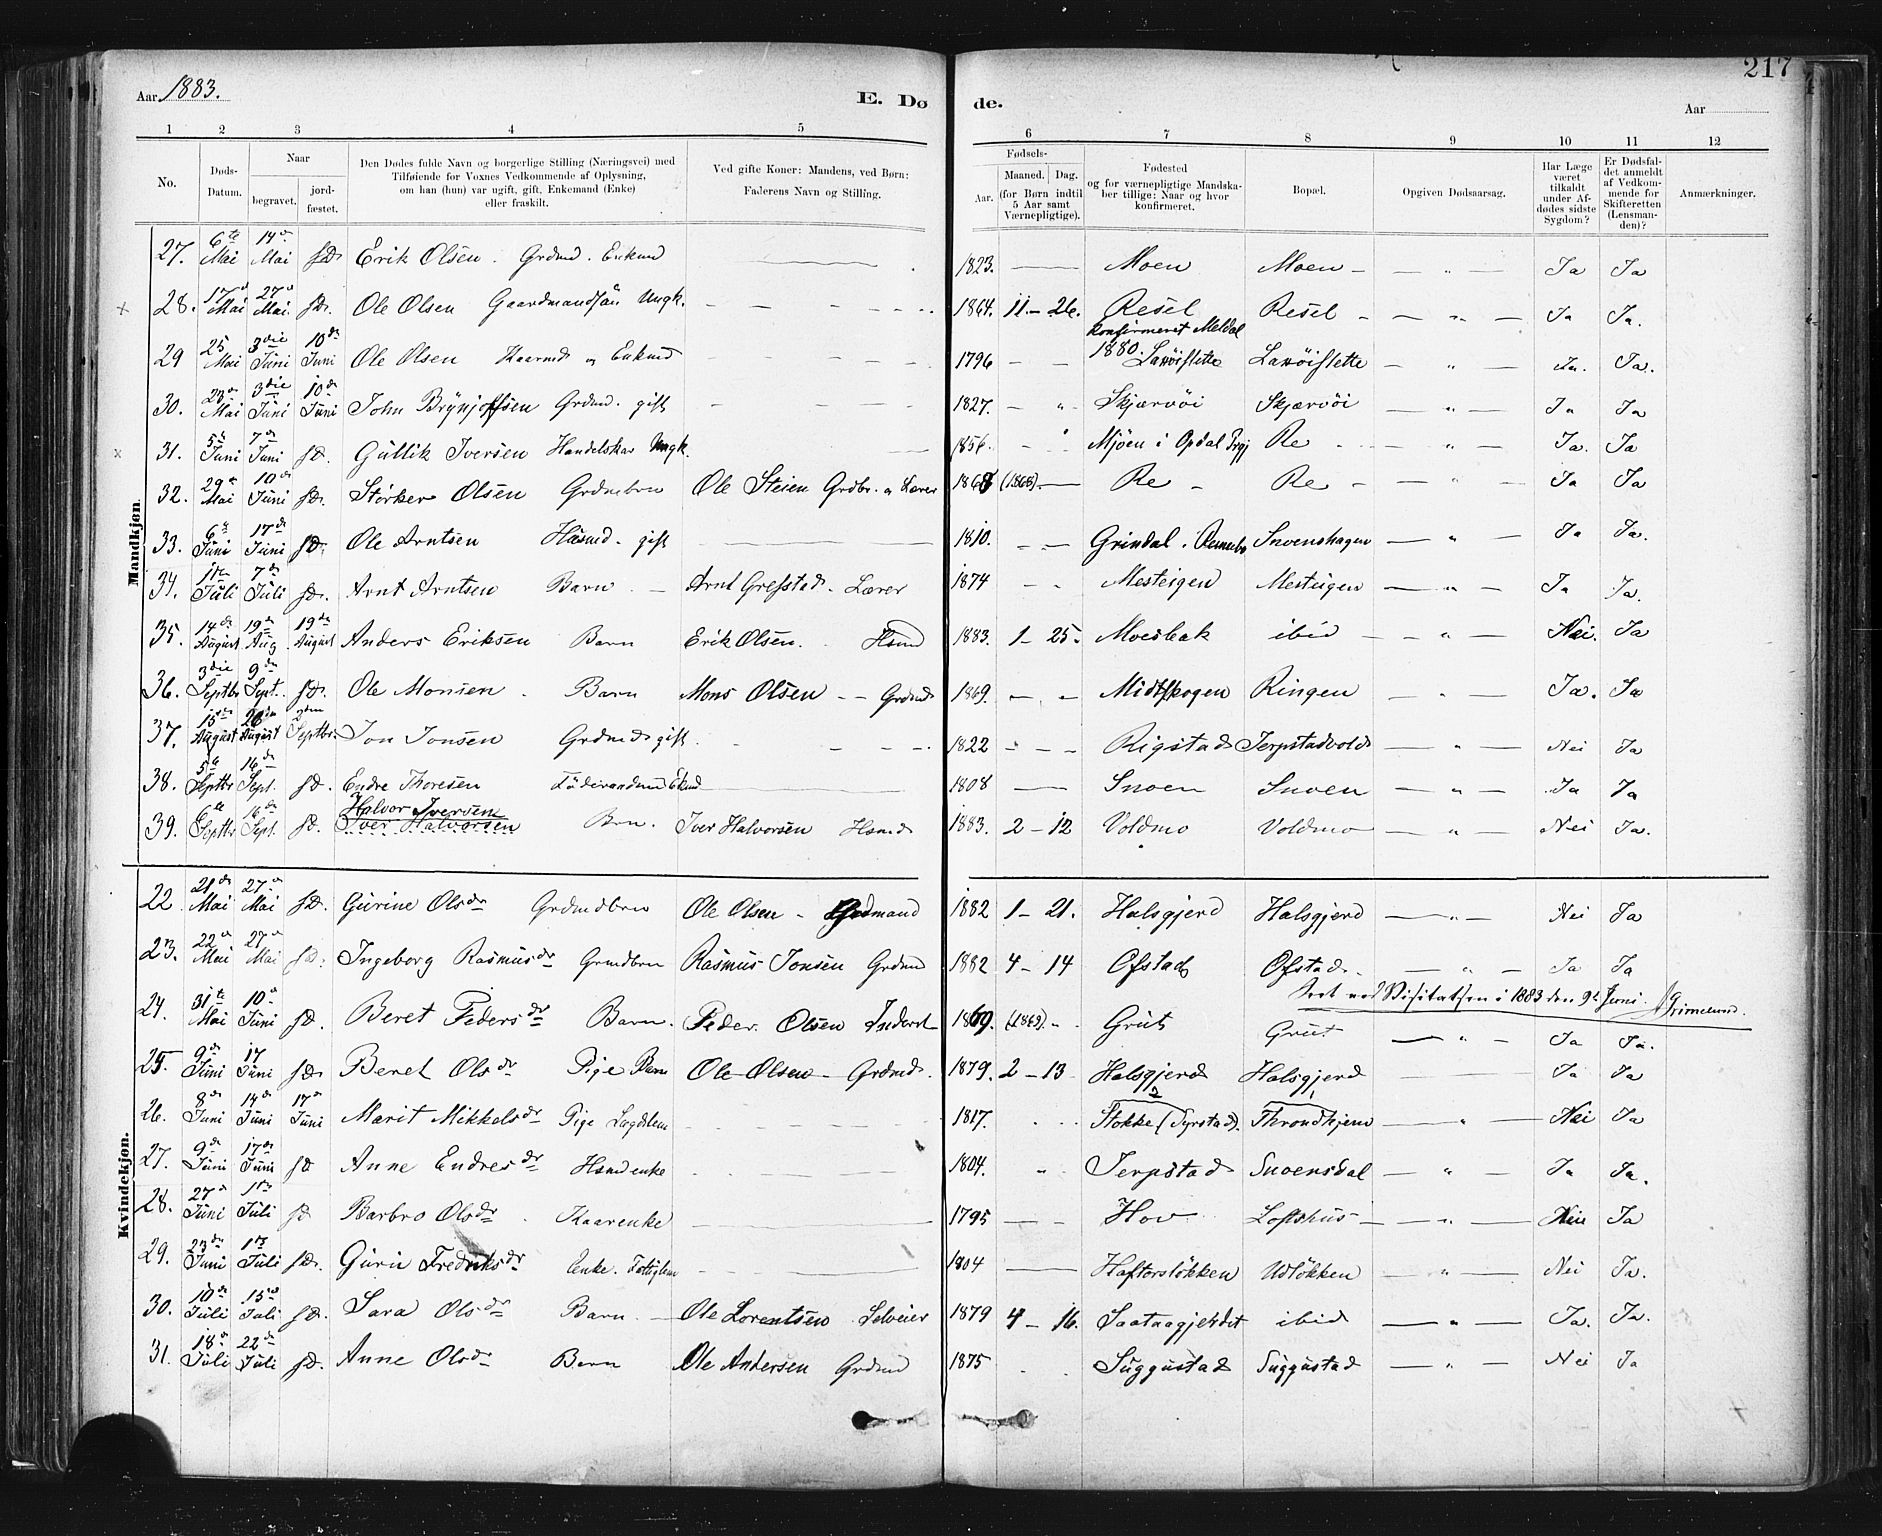 217
Aar 1883.
E. Dø de.
Aar
1 2 3 4 5 6 7 8 9 10 11 12
No. Døds-Datum. Naar begravet. jordfæstet. Den Dødes fulde Navn og borgerlige Stilling (Næringsvei) med Tilføiende for Voxnes Vedkommende af Oplysning, om han (hun) var ugift, gift, Enkemand (Enke) eller fraskilt. Ved gifte Koner: Mandens, ved Børn: Faderens Navn og Stilling. Fødsels- Aar. Maaned. Dag. (for Børn indtil 5 Aar samt Værnepligtige). Fødested og for værnepligtige Mandskaber tillige: Naar og hvor konfirmeret. Bopæl. Opgiven Dødsaarsag. Har Læge været tilkaldt under Afdødes sidste Sygdom? Er Dødsfaldet anmeldt af Vedkommende for Skifteretten (Lensmanden)? Anmærkninger.
Mandkjøn.
27. 6te Mai 14de Mai s.D. Erik Olsen. Grdmd. Enkmd 1823. Moen Moen - " - Ja Ja
28. 17d Mai 27d Mai. s.D. Ole Olsen Gaardmandsøn Ungk. 1864. 11 - 26. Resel konfirmeret Meldal 1880. Resel - " - Ja Ja.
29 25 Mai 3die Juni 10de Juni Ole Olsen Kaarmd og Enkmd 1796 Laxøislette Laxøislette - " - Ja. Ja.
30. 23de Mai 3die Juni 10de Juni John Brynjolfsen Grdmd. gift 1827. Skjærvöi Skjærvöi - " - Ja Ja
31. 5te Juni 7de Juni s.D. Gullik Iversen Handelskar Ungk. 1856. Mjöen i Opdal Prgj Re - " - Ja. Ja
32. 29de Mai 10de Juni s.D. Störker Olsen Grdmbrn Ole Steien Grdbr. og Lærer 1868 (1868). Re Re - " - Ja Ja
33. 6te Juni 17de Juni s.D. Ole Arntsen Husmd. gift 1810. Grindal i Rennebo Snoenshagen - " - Ja Ja.
34. 1ste Juli 7de Juli s.D. Arnt Arntsen Barn Arnt Grefstad. Lærer 1874 Mesteigen Mesteigen - " - Ja Ja.
35. 14de August 19de Aug. 19de August Anders Eriksen Barn Erik Olsen. Hsmd 1883. 1 - 25. Moesbak ibid - " - Nei. Ja
36. 3die Septbr 9de Sept. s.D. Ole Monsen Barn Mons Olsen Grdmd 1869. Midtskogen Ringen - " - Ja. Ja
37. 15de August 26de August 2den Septbr. Jon Jonsen Grdmd gift 1822 Rigstad Jerpstadvold - " - Nei Ja
38. 5te Septbr 16de Sept. s.D. Endre Thoresen Föderaadmd Ekmd 1808 Snoen Snoen - " - Ja Ja
39. 6te Septbr 16de Sept. s.D. Halvor Iversen Iver Halvorsen Brn. Iver Halvorsen Hsmd 1883. 2 - 12 Voldmo Voldmo - " - Nei Ja.
Kvindekjøn.
22 21de Mai 27d Mai s.D. Gurine Olsdr Grdmdbrn Ole Olsen - Grdmand 1882 1 - 21. Halsgjerd Halsgjerd - " - Nei Ja
23. 22d Mai 27d Mai s.D. Ingeborg Rasmusdr Grmdbrn Rasmus Jonsen Grdmd 1882 4 - 14 Ofstad Ofstad. - " - Ja Ja
Seet ved Visitatsen i 1883 den 9de Juni. Grimelund.
24. 31te Mai 10d Juni s.D. Beret Pedersdr Barn. Peder Olsen Inderst 1869. (1869). Grut Grut - " - Ja Ja.
25. 9de Juni 17 Juni s.D. Beret Olsdr Pige Barn Ole Olsen - Grdmd. 1879. 2 - 13 Halsgjerd Halsgjerd Ja Ja
26. 8de Juni 14de Juni 17d Juni Marit Mikkelsdr Pige Lægdslem 1817. Stokke (Syrstad). Throndhjem - " - Nei Ja
27. 9de Juni 17de Juni s.D Anne Endresdr Hsmdenke 1804. Jerpstad Snoensdal - " - Ja Ja.
28. 27d Juni 1ste Juli s.D Barbro Olsdr. Kaarenke 1795 Hov Loftshus - " - Nei Ja
29. 23de Juni 1ste Juli s.D. Guru Fredriksdr Enke. Fattiglem 1804 Haftorslökken Udlökken - " - Nei Ja.
30. 10de Juli 15de Juli s.D. Sara Olsdr Barn. Ole Lorentsen Selveier 1879 4 - 16. Saataagjerdet ibid - " - Ja. Ja.
31. 18d Juli 22de Juli s.D. Anne Olsdr Barn Ole Andersen Grdmd 1875 Suggustad Suggustad - " - Nei Ja